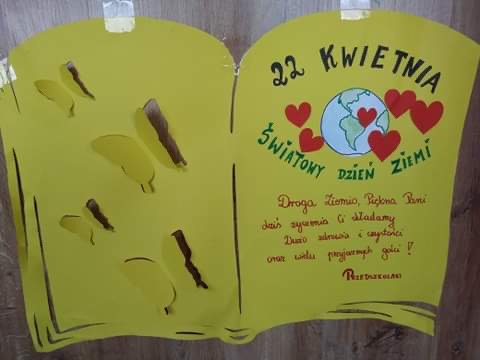 22 KWIETNIA
ŚWIATOWY DZIEŃ ZIEMI
Droga Ziemio, Piękna Pani
dziś życzenia Ci składamy
Dużo zdrowia i czystości
oraz wielu przyjaznych gości!
PRZEDSZKOLAKI